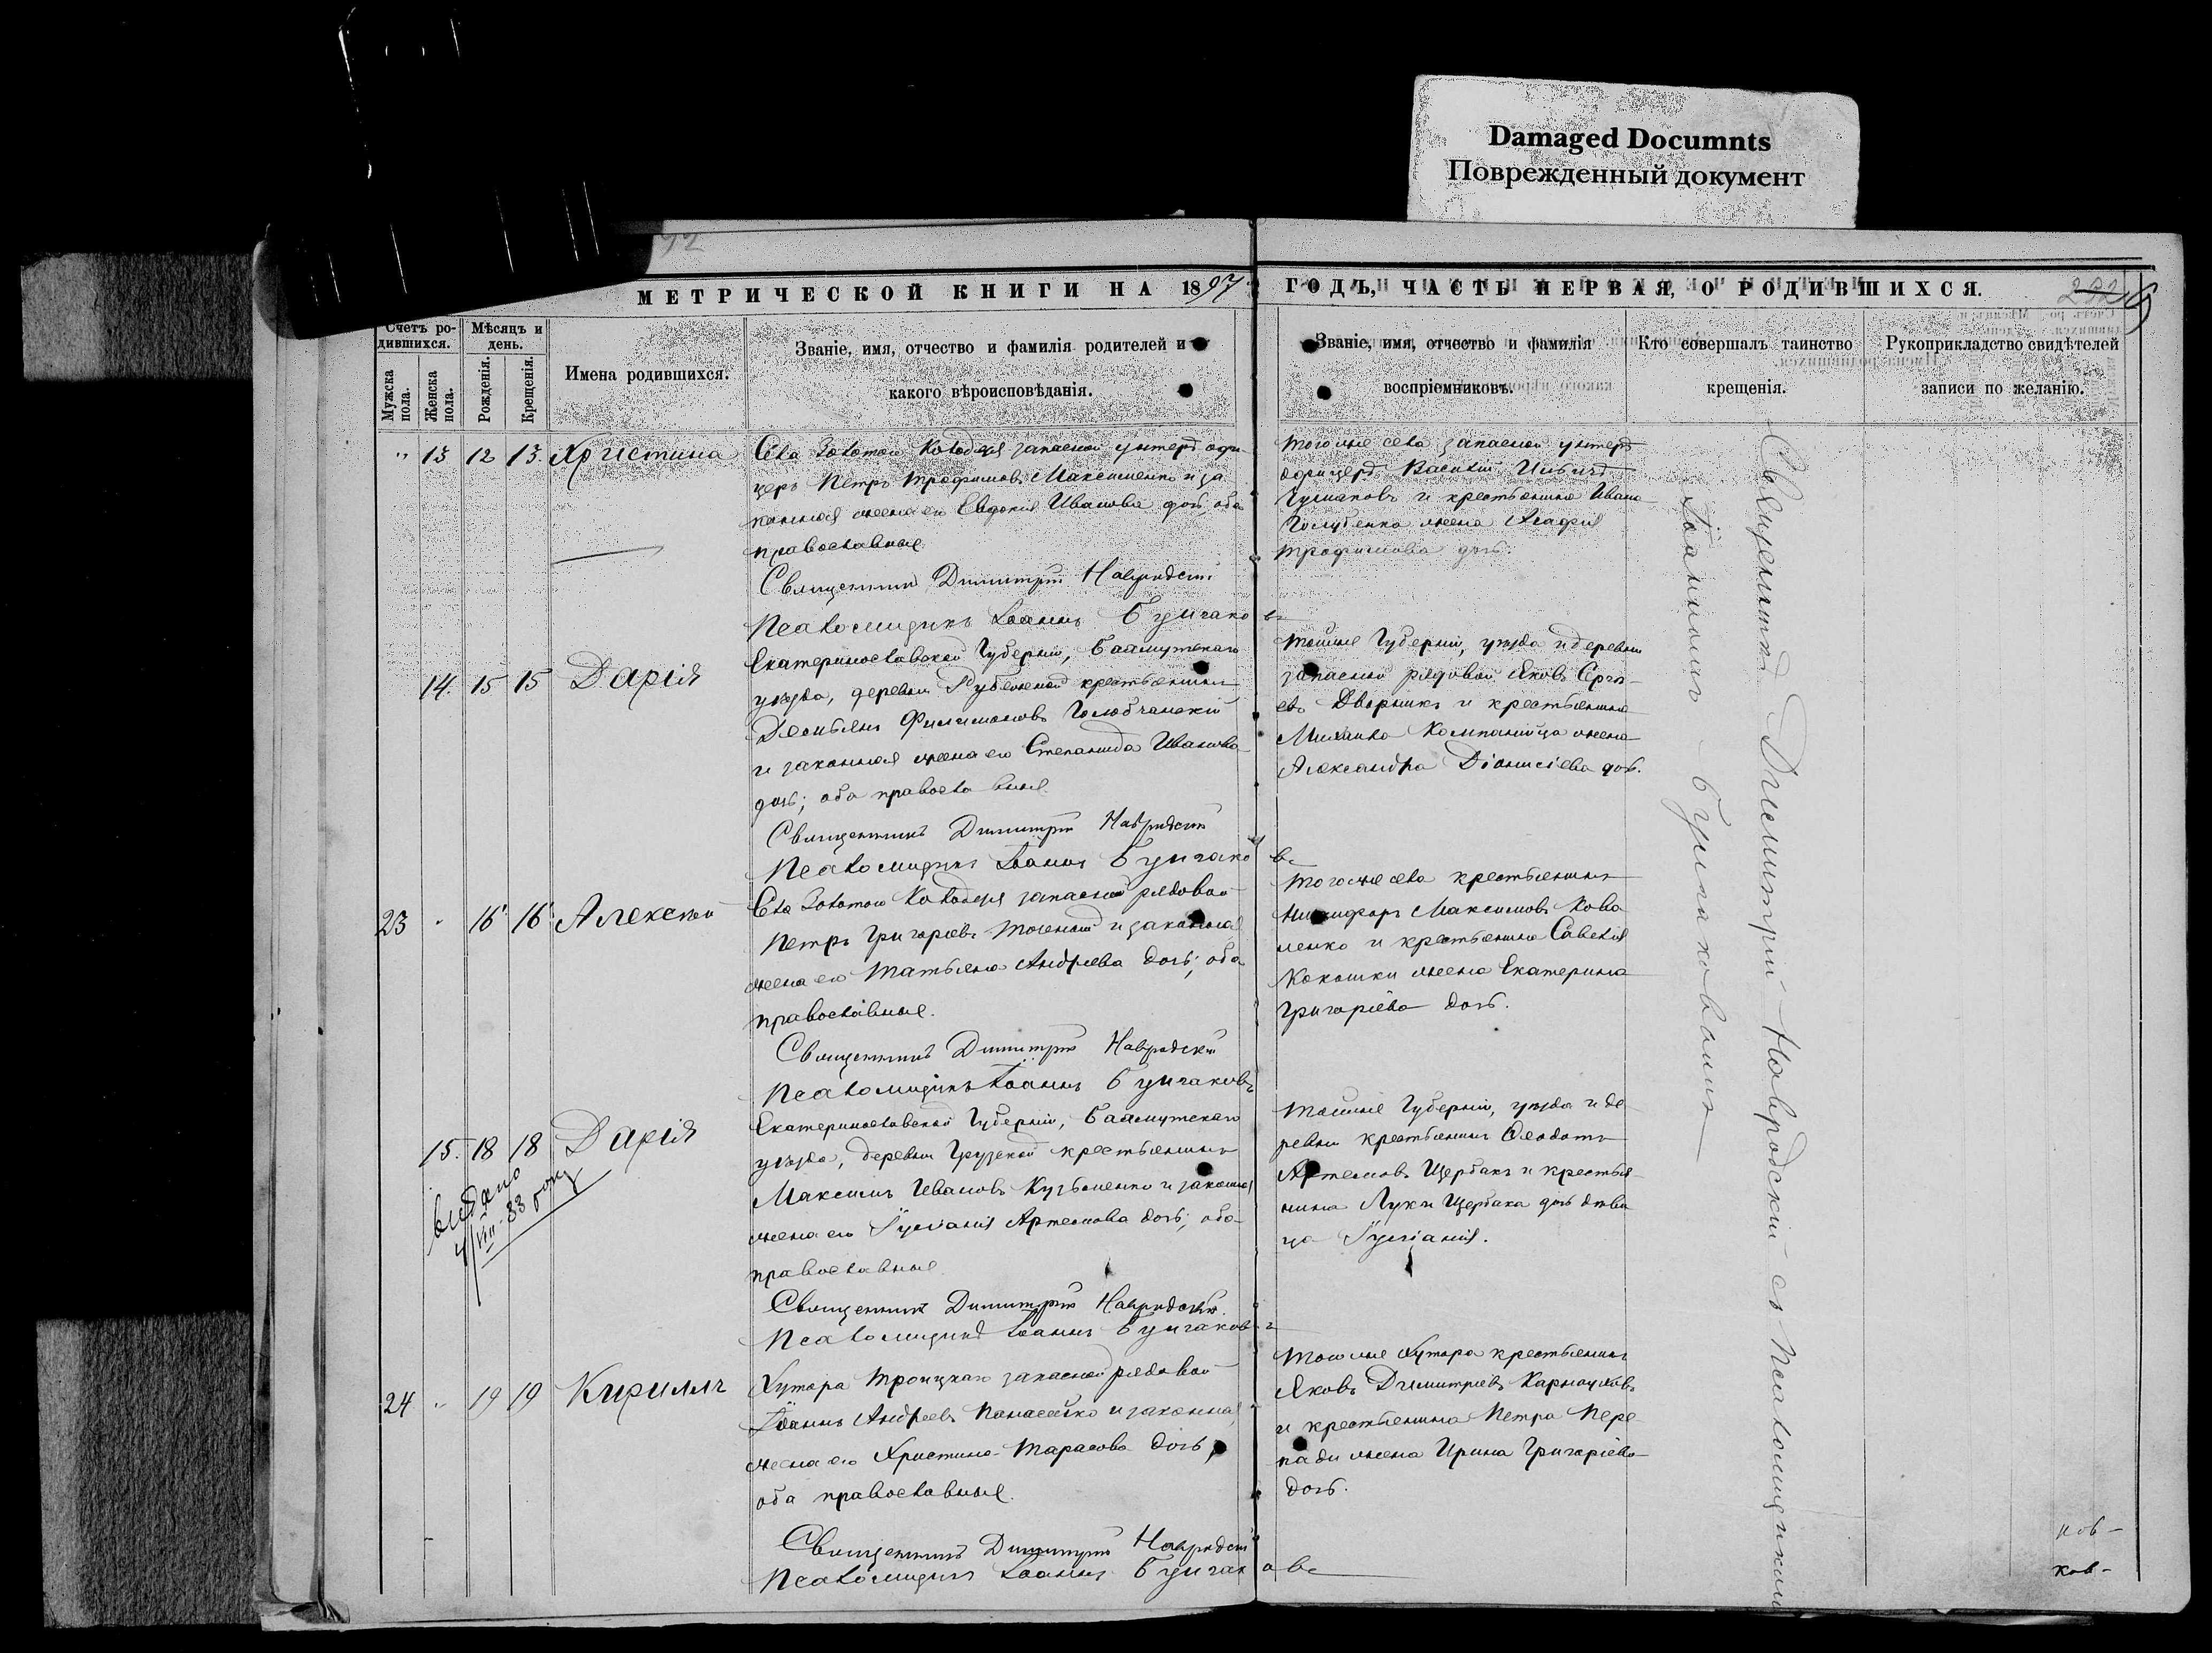 Damaged Documnts
Поврежденный документ
92
МЕТРИЧЕСКОЙ КНИГИ НА 1897
ГОДЪ, ЧАСТЬ ПЕРВАЯ, О РОДИВШИХСЯ.
232
Счетъ ро-
дившихся.
Мѣсяцъ и
день.
Мужска
пола.
Женска
пола.
Рожденія.
Крещенія.
Имена родившихся.
Званіе, имя, отчество и фамилія родителей и
какого вѣроисповѣданія.
Званіе, имя, отчество и фамилія
воспріемниковъ.
Кто совершалъ таинство
крещенія.
Рукоприкладство свидѣтелей
записи по желанію.
" 13 12 13. Христина
Села Золотого Колодезя запасной унтеръ офи-
церъ Петръ Трофимовъ Максименко и за
конная жена его Евдокия Иванова дочь, оба
православные.
Священникъ Димитрій Навродскій
Псаломщикъ Іоаннъ
Того же села запасной унтеръ
офицеръ Василій
и крестьянина Ивана
Голубенка жена Агафія
Трофимова дочь.
14. 15 15 Дарія
Екатеринославской Губерніи, Бахмутскаго
уѣзда, деревни крестьянинъ
Демьянъ Филимоновъ
и законная жена его Степанида Иванова
дочь; оба православные
Священникъ Димитрій Навродскій
Псаломщикъ Іоаннъ
Той же Губерніи, уѣзда и деревни
запасной рядовой Яковъ Сергѣ-
евъ Дворникъ и крестьянина
Михаила Компанійца жена
Александра Діонисіева дочь.
23 " 16 16 Алексѣй
Села Золотого Колодезя запасной рядовой
Петръ Григоріевъ и законная
жена его Татьяна Андреева дочь; оба
православные.
Священникъ Димитрій Навродскій
Псаломщикъ Іоаннъ
Того же села крестьянинъ
Никифоръ Максимовъ Кова
ленко и крестьянина Савелія
Кокошки жена Екатерина
Григоріева дочь.
15. 18 18 Дарія
видано
4/VIII-33 року
Екатеринославской Губерніи, Бахмутскаго
уѣзда, деревни Грузской крестьянинъ
Максимъ Ивановъ Кузьменко и законная
жена его Іуліанія Артемова дочь; оба
православные
Священникъ Димитрій Навродскій.
Псаломщикъ Іоаннъ
Той же Губерніи, уѣзда и де
ревни крестьянинъ Ѳеодотъ
Артемовъ Щербакъ и крестья-
нина Луки Щербака дочь дѣви
ца Іуліанія.
24 " 19 19 Кириллъ
Хутора Троицкаго запасной рядовой
Іоаннъ Андреевъ Панасейко и законная
жена его Христина Тарасова дочь,
оба православные.
Священникъ Димитрій Навродскій
Псаломщикъ Іоаннъ
Того же хутора крестьянинъ
Яковъ Димитріевъ
и крестьянина Петра Пере
пади жена Ирина Григоріева
дочь.
Священникъ Димитрій Навродскій съ Псаломщикомъ
Іоанномъ
ков-
ков-